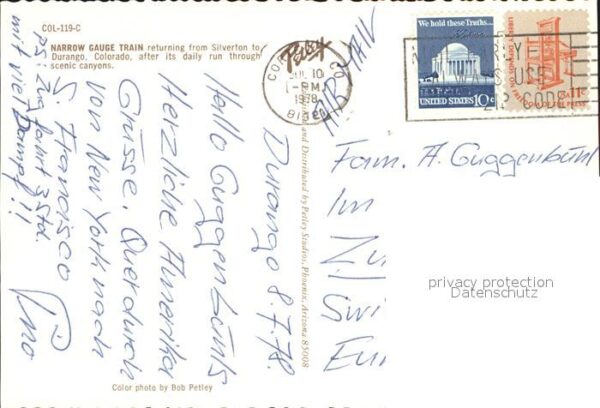 COL-119-C
NARROW GAUGE TRAIN returning from Silverton to
Durango, Colorado, after its daily run through
scenic canyons.
Petley
JUL 10
-PM
1978
AIR MAIL
We hold these Truths...
UNITED STATES 10c
11c
USE
ZIP CODE
Durango 8.7.78.
Hello Guggenbühls
Herzliche Amerika
Grüsse. Querdurch
von New York nach
S. Francisco
PS: Zug fährt 3 Std.
mit viel Dampf!!
Pino
Distributed by Petley Studios, Phoenix, Arizona 85008
Fam. A. Guggenbühl
Im
Zü
Swi
Eur
privacy protection
Datenschutz
Color photo by Bob Petley